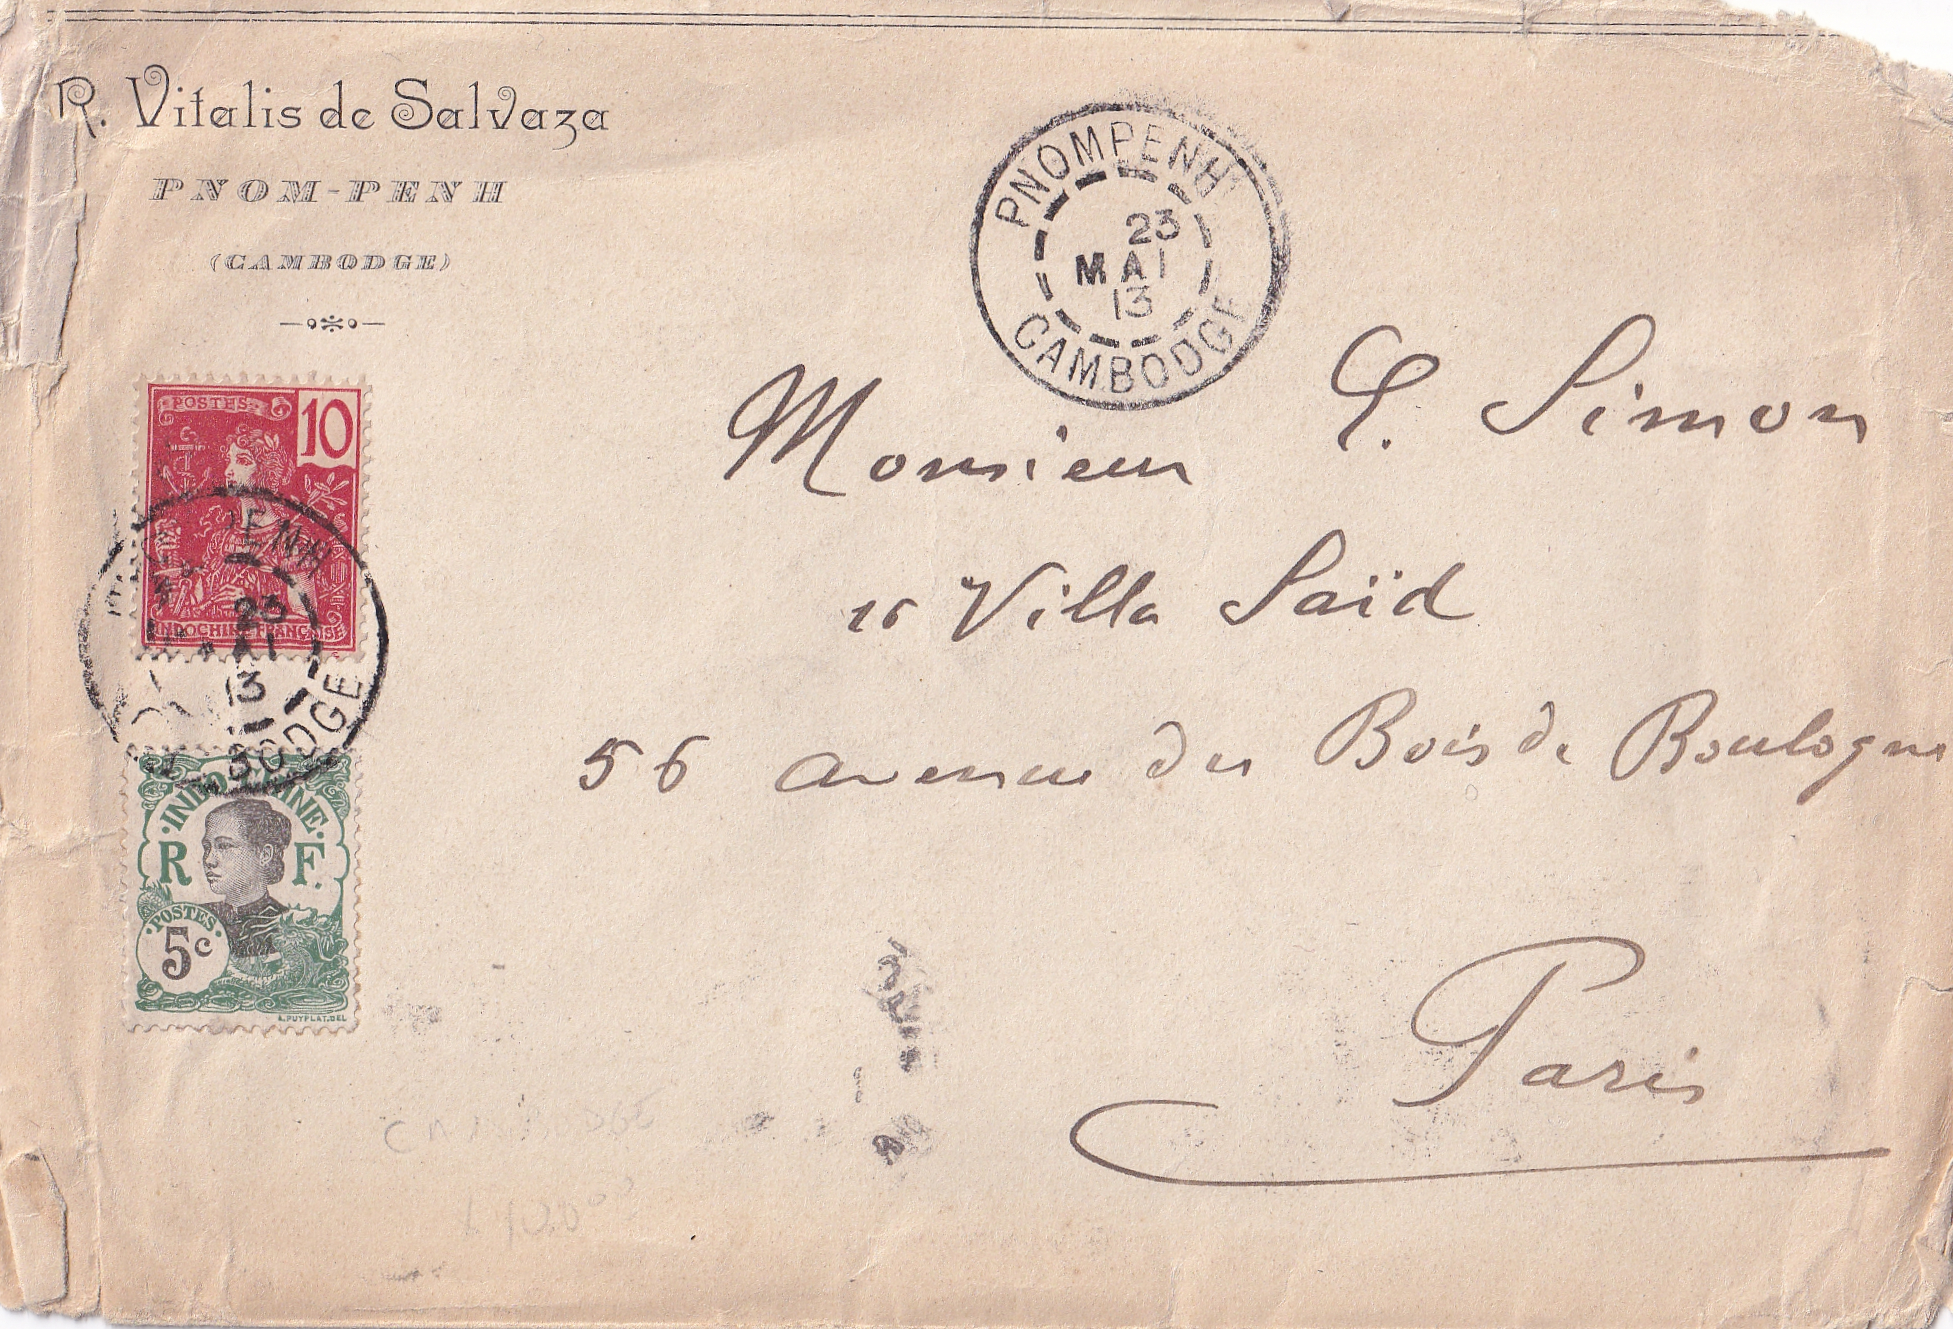 R. Vitalis de Salvaza
PNOM-PENH
(CAMBODGE)
PNOMPENH
23
MAI
13
CAMBODGE
POSTES
10
INDOCHINE FRANÇAISE
23
13
BODGE
INDOCHINE
R F.
POSTES
5c
A. PUYPLAT. DEL
Monsieur Simon
16 Villa Saïd
56 avenue du Bois de Boulogne
Paris